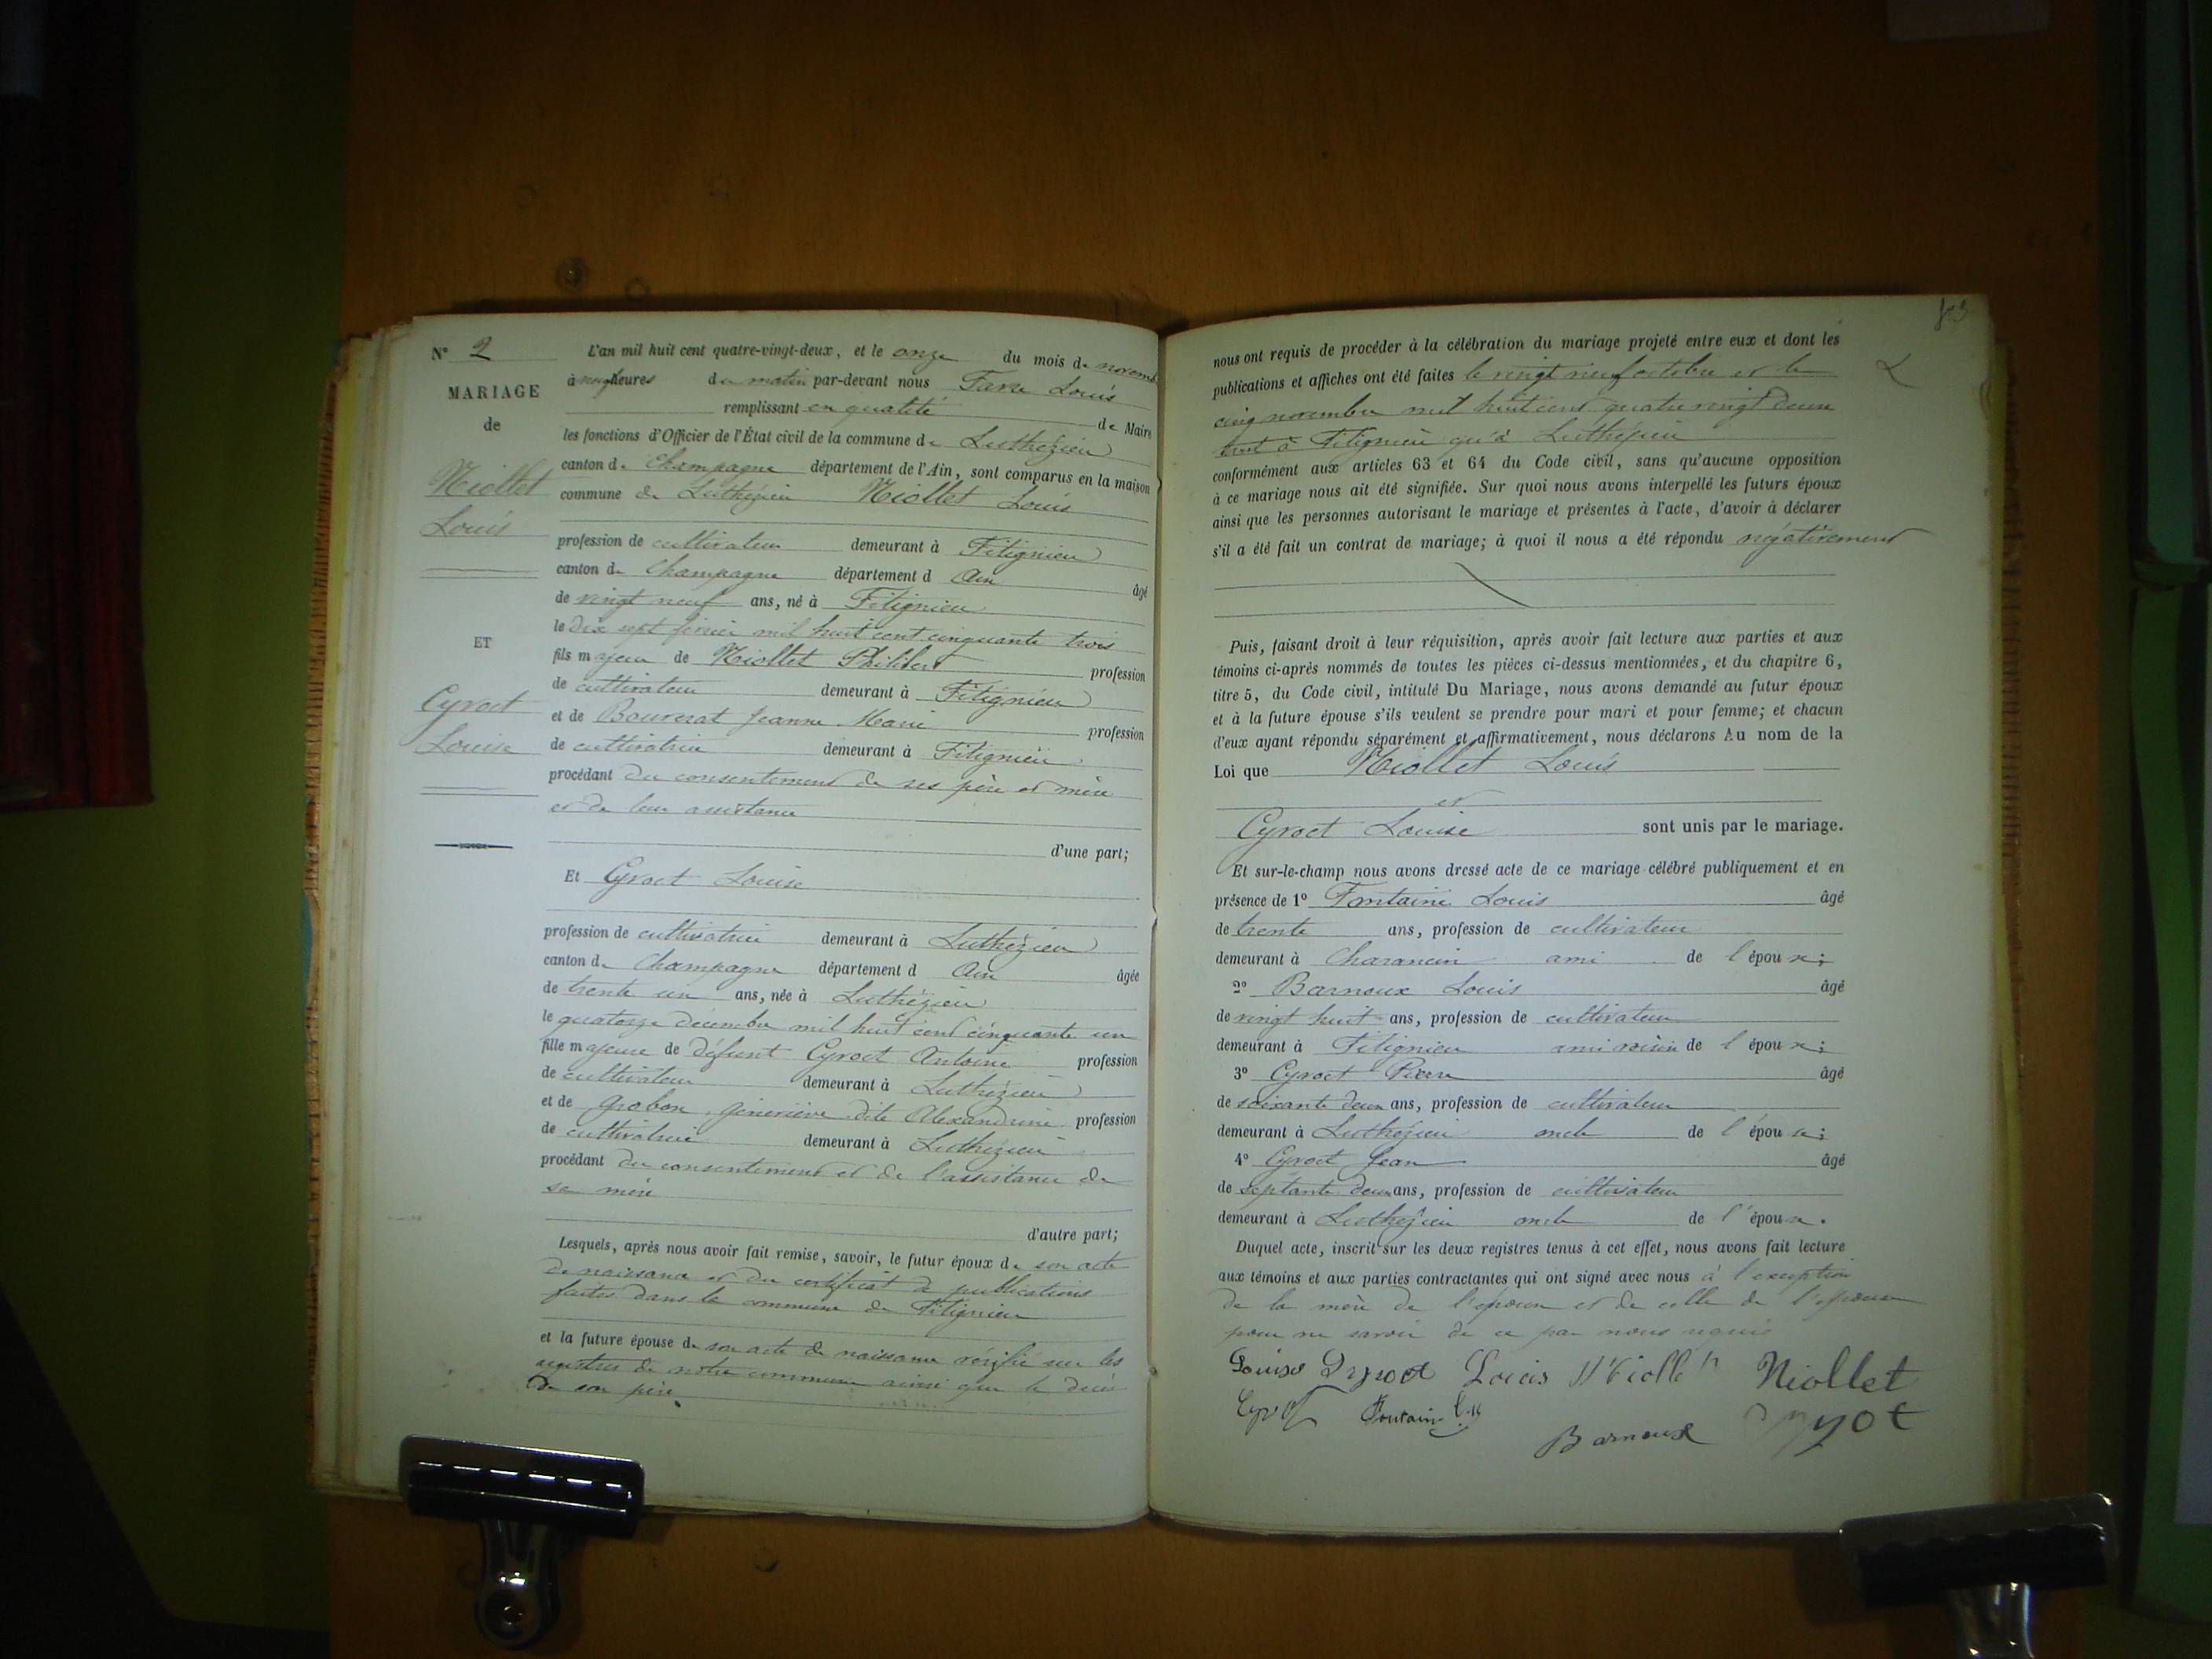 N° 2
MARIAGE
de
Niollet
Louis
ET
Cyroct
Louise
L'an mil huit cent quatre-vingt-deux, et le onze du mois de novemb
à neuf heures du matin par-devant nous Favre Louis
remplissant en qualité de Maire
les fonctions d'Officier de l'État civil de la commune de Luthézieu
canton de Champagne département de l'Ain, sont comparus en la maison
commune de Luthézieu Niollet Louis
profession de cultivateur demeurant à Fitignieu
canton de Champagne département d Ain âgé
de vingt neuf ans, né à Fitignieu
le dix sept février mil huit cent cinquante trois
fils majeur de Niollet Philibert profession
de cultivateur demeurant à Fitignieu
et de Bouvrat Jeanne Marie profession
de cultivatrice demeurant à Fitignieu
procédant du consentement de ses père et mère
et de leur assistance
d'une part;
Et Cyroct Louise
profession de cultivatrice demeurant à Luthézieu
canton de Champagne département d Ain âgée
de trente un ans, née à Luthézieu
le quatorze décembre mil huit cent cinquante un
fille majeure de défunt Cyroct Antoine profession
de cultivateur demeurant à Luthézieu
et de Grobon Geneviève dite Alexandrine profession
de cultivatrice demeurant à Luthézieu
procédant du consentement et de l'assistance de
sa mère
d'autre part;
Lesquels, après nous avoir fait remise, savoir, le futur époux de son acte
de naissance et du certificat de publications
faites dans la commune de Fitignieu
et la future épouse de son acte de naissance vérifié sur les
registres de notre commune ainsi que le décès
de son père
83
nous ont requis de procéder à la célébration du mariage projeté entre eux et dont les
publications et affiches ont été faites le vingt neuf octobre et le
cinq novembre mil huit cent quatre vingt deux
tant à Fitignieu qu'à Luthézieu
conformément aux articles 63 et 64 du Code civil, sans qu'aucune opposition
à ce mariage nous ait été signifiée. Sur quoi nous avons interpellé les futurs époux
ainsi que les personnes autorisant le mariage et présentes à l'acte, d'avoir à déclarer
s'il a été fait un contrat de mariage; à quoi il nous a été répondu négativement
Puis, faisant droit à leur réquisition, après avoir fait lecture aux parties et aux
témoins ci-après nommés de toutes les pièces ci-dessus mentionnées, et du chapitre 6,
titre 5, du Code civil, intitulé Du Mariage, nous avons demandé au futur époux
et à la future épouse s'ils veulent se prendre pour mari et pour femme; et chacun
d'eux ayant répondu séparément et affirmativement, nous déclarons Au nom de la
Loi que Niollet Louis
et
Cyroct Louise sont unis par le mariage.
Et sur-le-champ nous avons dressé acte de ce mariage célébré publiquement et en
présence de 1° Fontaine Louis âgé
de trente ans, profession de cultivateur
demeurant à Charancin ami de l'époux;
2° Barnoux Louis âgé
de vingt huit ans, profession de cultivateur
demeurant à Fitignieu ami voisin de l'époux;
3° Cyroct Pierre âgé
de soixante deux ans, profession de cultivateur
demeurant à Luthézieu oncle de l'épouse;
4° Cyroct Jean âgé
de septante deux ans, profession de cultivateur
demeurant à Luthézieu oncle de l'épouse.
Duquel acte, inscrit sur les deux registres tenus à cet effet, nous avons fait lecture
aux témoins et aux parties contractantes qui ont signé avec nous à l'exception
de la mère de l'époux et de celle de l'épouse
pour ne savoir de ce par nous requis
Louise Louis Niollet
Barnoux